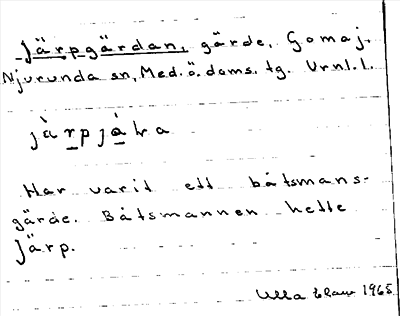 Järpgärdan, gärde, Gomaj,
Njurunda sn, Med. ö. doms. tg. Vrnl. l.
Har varit ett båtsmans-
gärde. Båtsmannen hette
Järp.
Ulla 1965